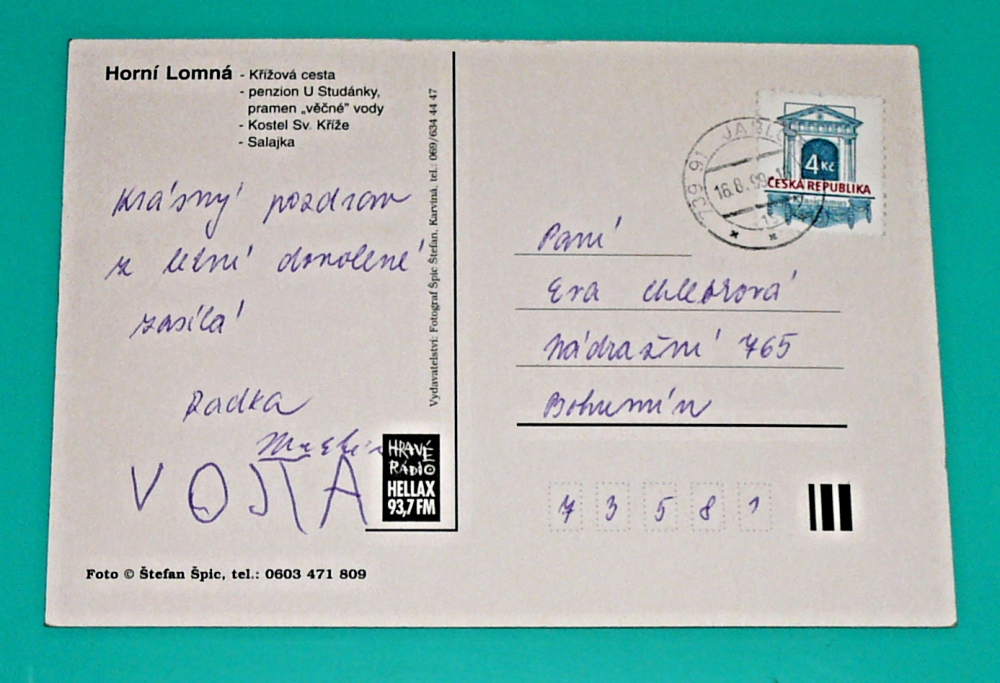 Horní Lomná - Křížová cesta
- penzion U Studánky,
pramen „věčné" vody
- Kostel Sv. Kříže
- Salajka
Krásný pozdrav
z letní dovolené
zasílá
Radka
Martin
VOJTA
HRAVÉ
RÁDIO
HELLAX
93,7 FM
Foto © Štefan Špic, tel.: 0603 471 809
Vydavatelství: Fotograf Špic Štefan, Karviná, tel.: 069/634 44 47
739 91 JABLO
16.8.99
4 Kč
ČESKÁ REPUBLIKA
Paní
Eva
Nádražní 765
Bohumín
7 3 5 8 1